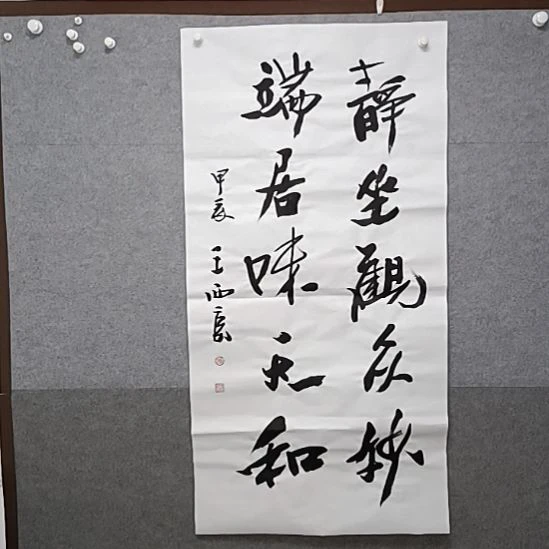 靜坐觀众妙
端居味天和
甲辰 王西